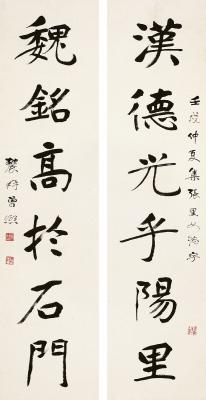 漢德光乎陽里
壬戌仲夏集張里女張字
魏銘高於石門
農髯曾熙